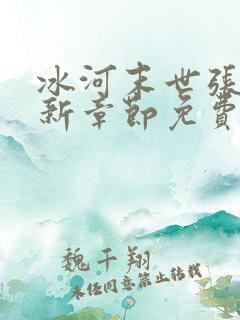 冰河末世张
新章節免費
魏千翔
未经同意禁止转载